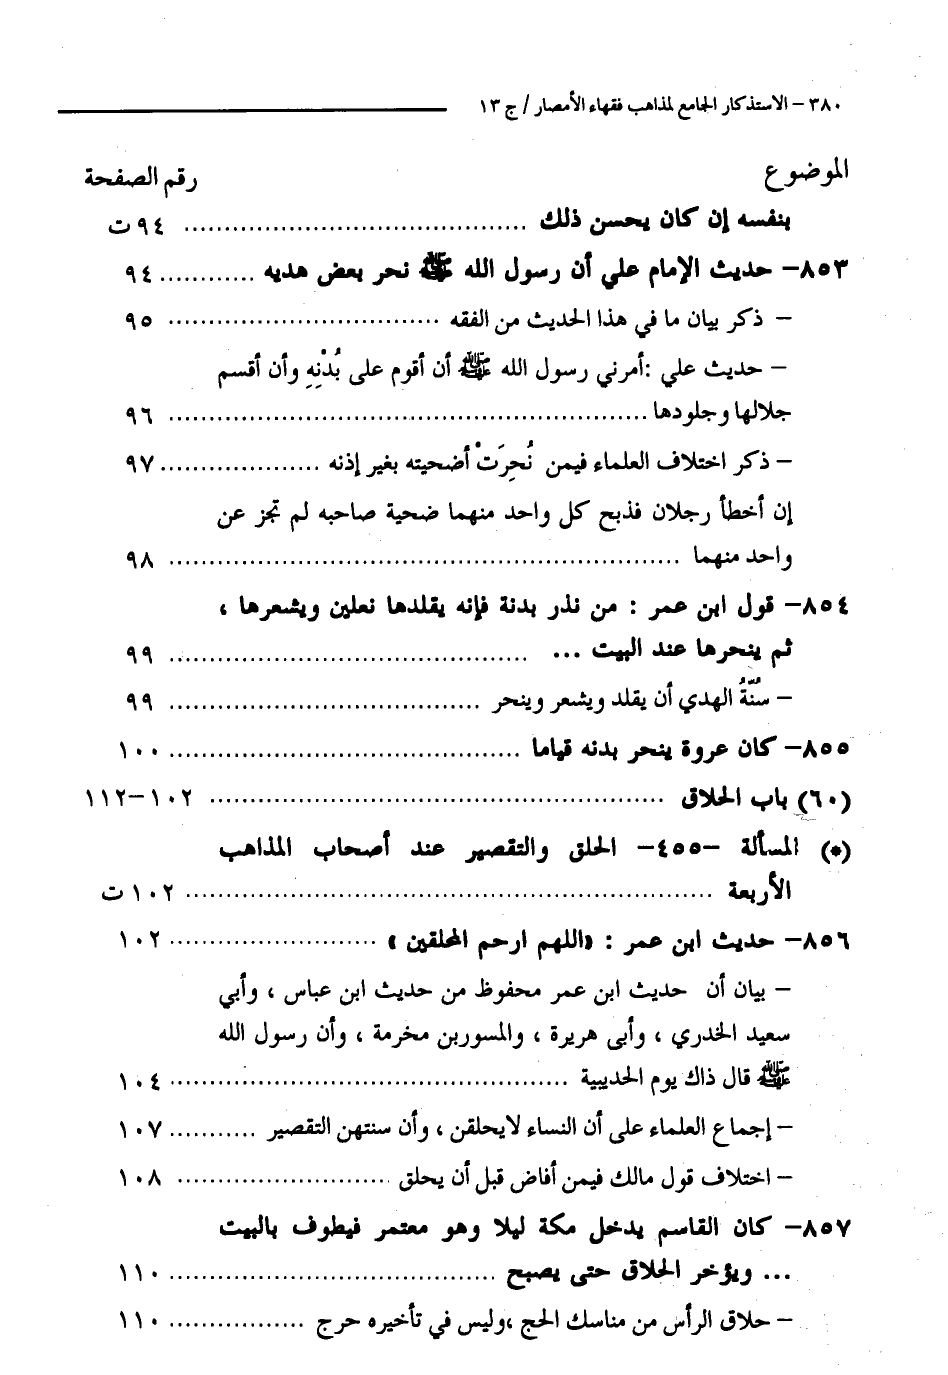 ٣٨٠ – الاستذكار الجامع لمذاهب فقهاء الأمصار / ج ١٣
الموضوع رقم الصفحة
بنفسه إن كان يحسن ذلك ........ ٩٤ ت
٨٥٣– حديث الإمام علي أن رسول الله ﷺ نحر بعض هديه ........ ٩٤
– ذكر بيان ما في هذا الحديث من الفقه ........ ٩٥
– حديث علي :أمرني رسول الله ﷺ أن أقوم على بُدْنِهِ وأن أقسم
جلالها وجلودها ........ ٩٦
– ذكر اختلاف العلماء فيمن نُحِرَتْ أضحيته بغير إذنه ........ ٩٧
إن أخطأ رجلان فذبح كل واحد منهما ضحية صاحبه لم تجز عن
واحد منهما ........ ٩٨
٨٥٤– قول ابن عمر : من نذر بدنة فإنه يقلدها نعلين ويشعرها ،
ثم ينحرها عند البيت ... ........ ٩٩
– سُنَّةُ الهدي أن يقلد ويشعر وينحر ........ ٩٩
٨٥٥– كان عروة ينحر بدنه قياما ........ ١٠٠
(٦٠) باب الحلاق ........ ١٠٢–١١٢
(*) المسألة –٤٥٥– الحلق والتقصير عند أصحاب المذاهب
الأربعة ........ ١٠٢ ت
٨٥٦– حديث ابن عمر : «اللهم ارحم المحلقين » ........ ١٠٢
– بيان أن حديث ابن عمر محفوظ من حديث ابن عباس ، وأبي
سعيد الخدري ، وأبى هريرة ، والمسوربن مخرمة ، وأن رسول الله
ﷺ قال ذاك يوم الحديبية ........ ١٠٤
– إجماع العلماء على أن النساء لايحلقن ، وأن سنتهن التقصير ........ ١٠٧
– اختلاف قول مالك فيمن أفاض قبل أن يحلق ........ ١٠٨
٨٥٧– كان القاسم يدخل مكة ليلا وهو معتمر فيطوف بالبيت
... ويؤخر الحلاق حتى يصبح ........ ١١٠
– حلاق الرأس من مناسك الحج ،وليس في تأخيره حرج ........ ١١٠